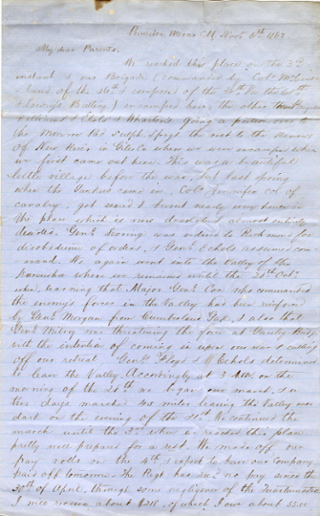 Princeton Mercer Co. Nov 6th 1862
My dear Parents.
We reached this place on the 3rd
instant & our Brigade (Commanded by Col. McCaus-
land of the 36th) composed of the 36th Va the 60th &
Battery) is encamped here, the other two
(Williams & Echols & Whartons) going a portion over to
the Monroe the rest to the Narrows
of New River in Giles Co where we were encamped when
we first came out here. This was a beautiful
little village before the war, but last spring
when the Yankees came in Col. Jenifer Col of
cavalry, got scared & burnt nearly every house in
the place which is now desolate & almost entirely
deserted. Genl Loring was ordered to Richmond for
disobedience of orders, & Genl Echols assumed com-
mand. We again went into the Valley of the
Kanawha where we remained until the Oct
when learning that Major Genl Cox who commanded
the enemy's forces in the Valley had been reinforced
by Genl Morgan from Cumberland Gap, & also that
Genl Milroy was threatning the force at
with the intention of coming in upon our rear & cutting
off our retreat Genl Floyd & Echols determined
to leave the Valley. Accordingly at 3 AM. on the
morning of the 28th we began our march, & on
this day marched miles leaving the Valley
dark on the evening of the 31st. We continued the
march until the 3rd when we reached this place
pretty well prepared for a rest. We made off our
pay rolls on the 4th & expect to have our Company
paid off tomorrow. The Regt has had no pay since the
30th of April, through some negligence of the Quartermaster
I will receive about $210, of which I owe about 55.00